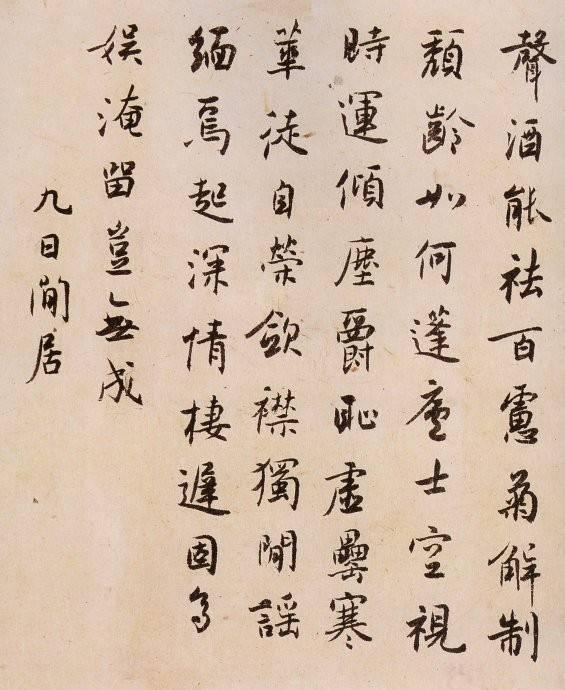 聲酒能祛百慮菊解制
頹齡如何蓬廬士空視
時運傾塵爵恥虛罍寒
華徒自榮斂襟獨閒謠
緬焉起深情棲遲固多
娛淹留豈無成
九日閒居